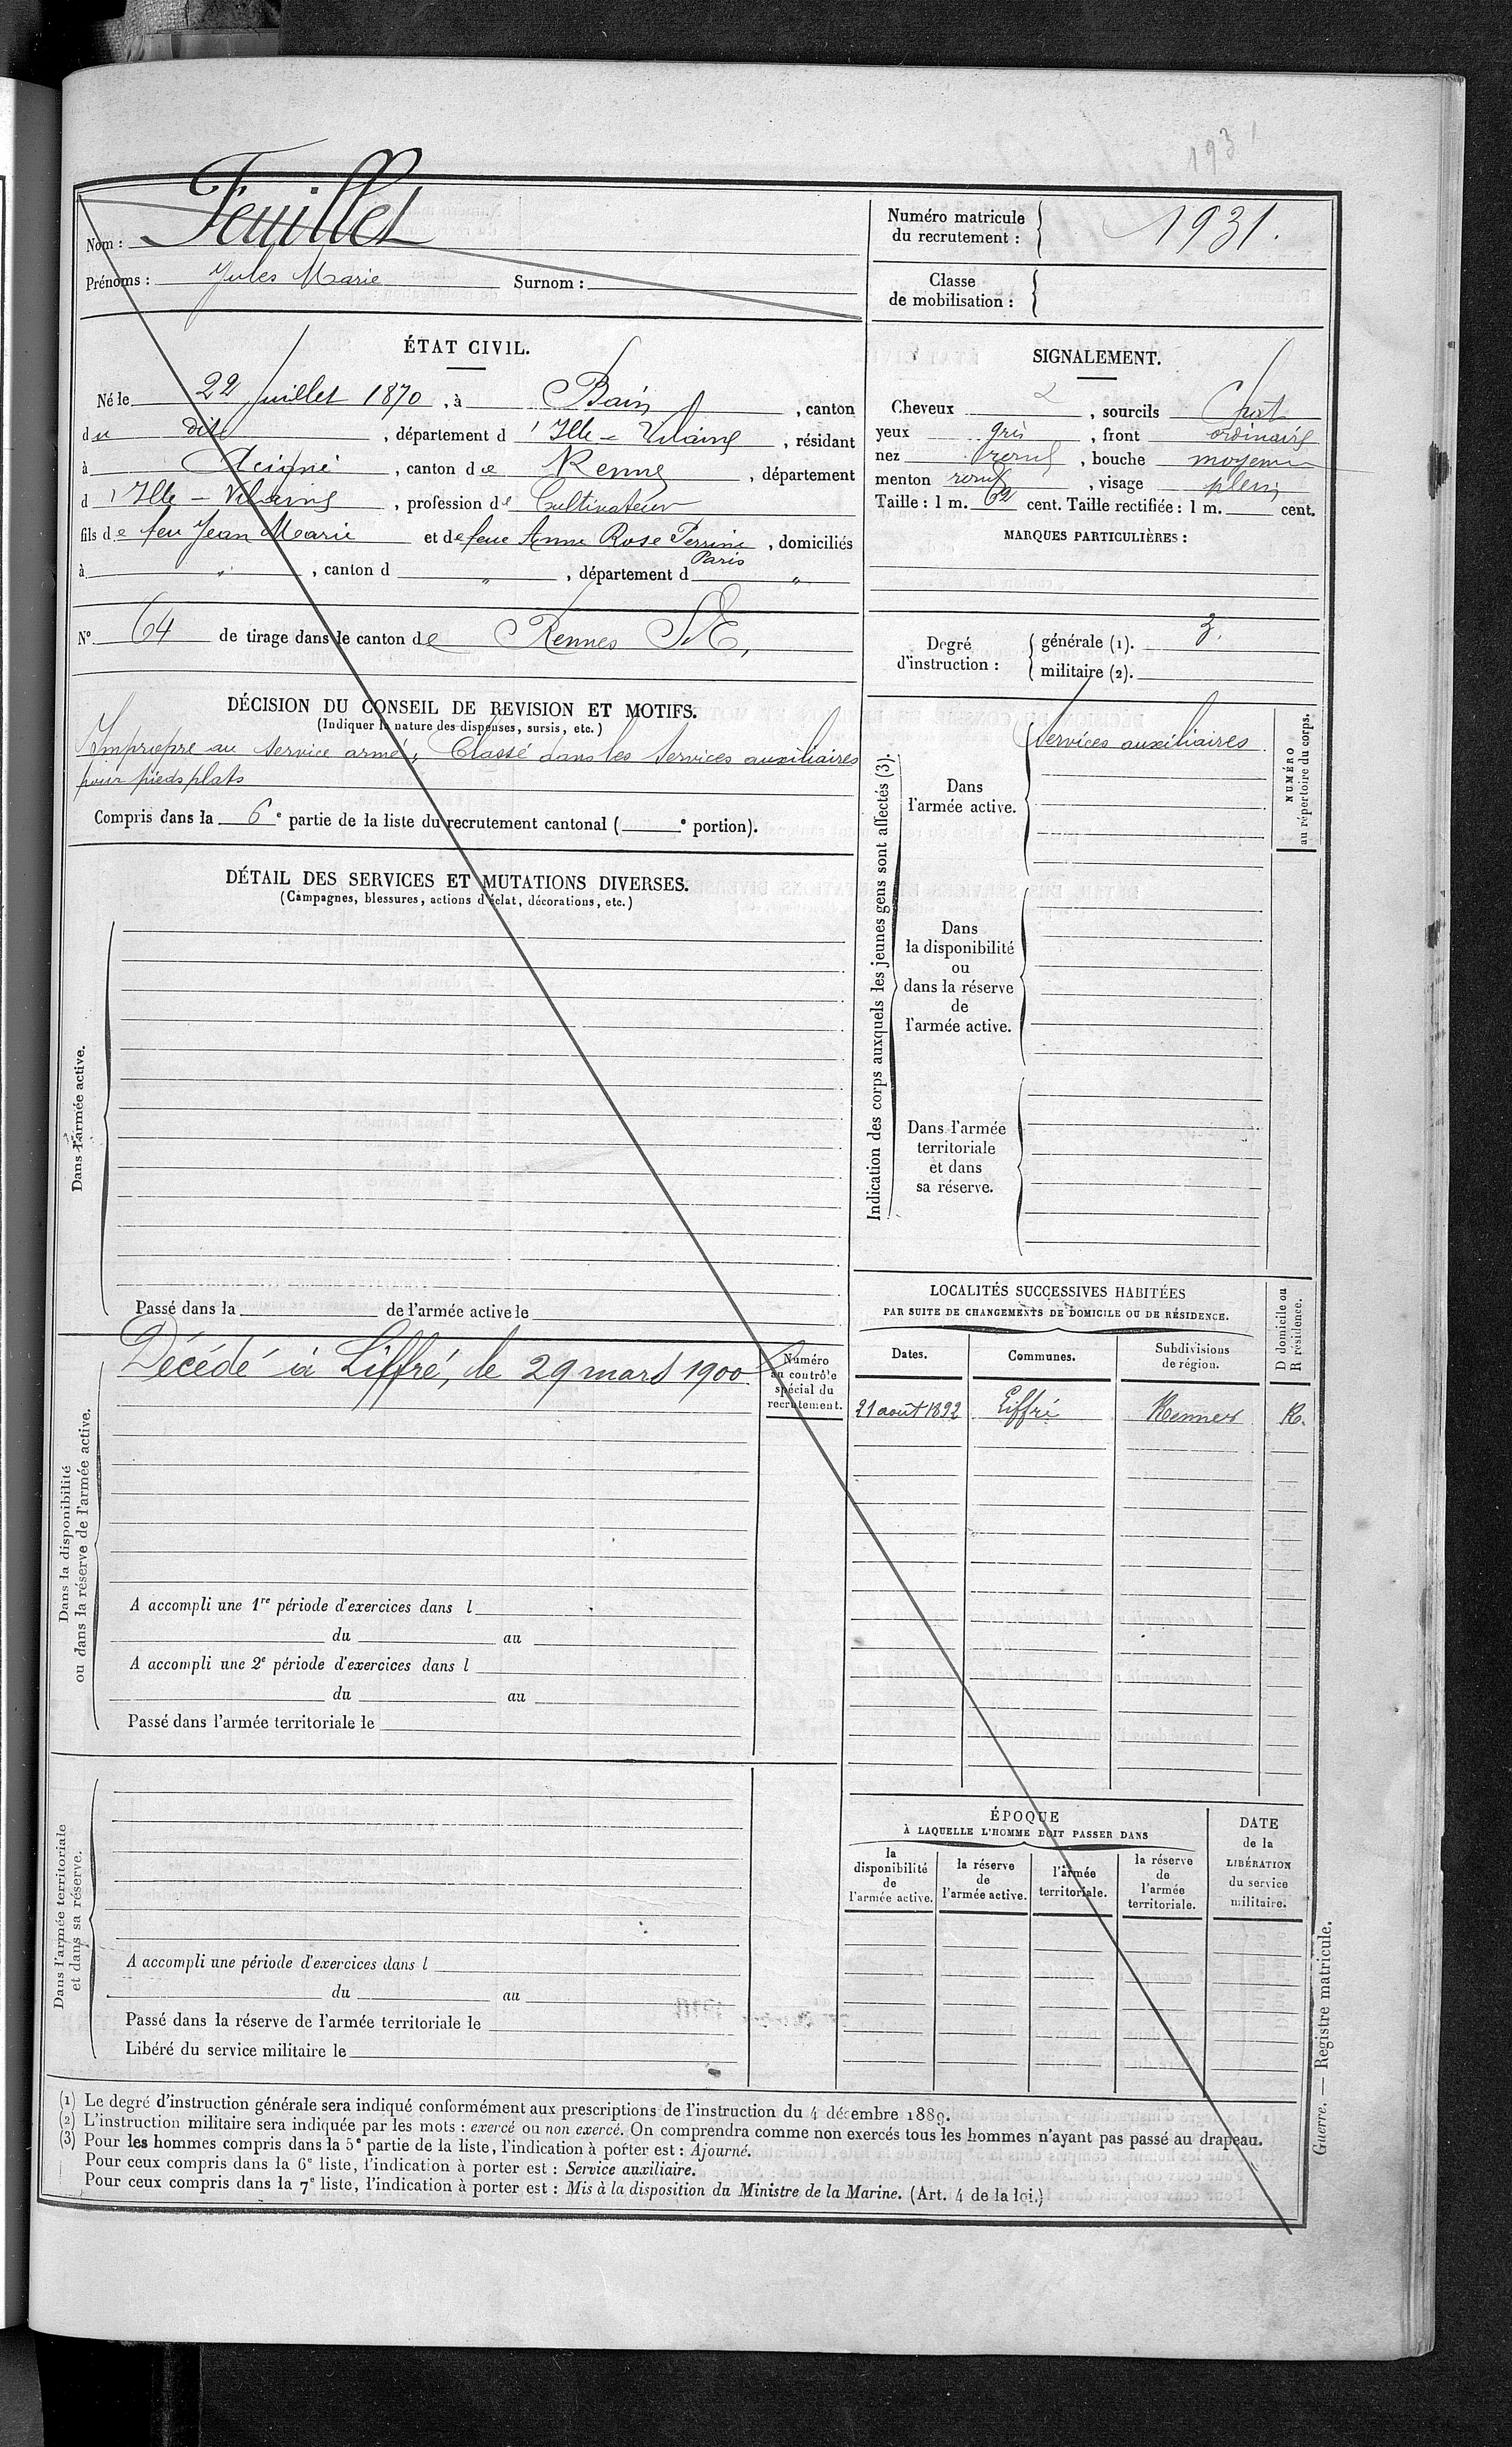 193
Nom : Feuillet
Prénoms : Jules Marie Surnom :
Numéro matricule du recrutement : 1931.
Classe de mobilisation :
ÉTAT CIVIL.
Né le 22 Juillet 1870, à Bain, canton
du dit, département d'Ille-Vilaine, résidant
à Acigné, canton de Rennes, département
d'Ille-Vilaine, profession de Cultivateur
fils de feu Jean Marie et de feue Anne Rose Perrine Paris, domiciliés
à " , canton d " , département d "
N° 64 de tirage dans le canton de Rennes S.E,
SIGNALEMENT.
Cheveux , sourcils Chat
yeux gris, front ordinaire
nez , bouche moyenne
menton rond, visage plein
Taille : 1 m. 62 cent. Taille rectifiée : 1 m. cent.
MARQUES PARTICULIÈRES :
Degré d'instruction : générale (1). 3.
militaire (2).
DÉCISION DU CONSEIL DE REVISION ET MOTIFS.
(Indiquer la nature des dispenses, sursis, etc.)
Impropre au service armé, Classé dans les services auxiliaires
pour pieds plats
Compris dans la 6e partie de la liste du recrutement cantonal ( e portion).
DÉTAIL DES SERVICES ET MUTATIONS DIVERSES.
(Campagnes, blessures, actions d'éclat, décorations, etc.)
Dans l'armée active.
Passé dans la de l'armée active le
Indication des corps auxquels les jeunes gens sont affectés (3).
Dans
l'armée active.
Services auxiliaires.
NUMÉRO
au répertoire du corps.
Dans
la disponibilité
ou
dans la réserve
de
l'armée active.
Dans l'armée
territoriale
et dans
sa réserve.
Dans la disponibilité
ou dans la réserve de l'armée active.
Décédé à Liffré, le 29 mars 1900
Numéro
au contrôle
spécial du
recrutement.
A accompli une 1re période d'exercices dans l
du au
A accompli une 2e période d'exercices dans l
du au
Passé dans l'armée territoriale le
LOCALITÉS SUCCESSIVES HABITÉES
PAR SUITE DE CHANGEMENTS DE DOMICILE OU DE RÉSIDENCE.
D domicile ou
R résidence.
Dates. Communes. Subdivisions de région.
21 août 1892 Liffré Rennes R.
Dans l'armée territoriale
et dans sa réserve.
A accompli une période d'exercices dans l
du au
Passé dans la réserve de l'armée territoriale le
Libéré du service militaire le
ÉPOQUE
À LAQUELLE L'HOMME DOIT PASSER DANS
la
disponibilité
de
l'armée active.
la réserve
de
l'armée active.
l'armée
territoriale.
la réserve
de
l'armée
territoriale.
DATE
de la
LIBÉRATION
du service
militaire.
(1) Le degré d'instruction générale sera indiqué conformément aux prescriptions de l'instruction du 4 décembre 1889.
(2) L'instruction militaire sera indiquée par les mots : exercé ou non exercé. On comprendra comme non exercés tous les hommes n'ayant pas passé au drapeau.
(3) Pour les hommes compris dans la 5e partie de la liste, l'indication à porter est : Ajourné.
Pour ceux compris dans la 6e liste, l'indication à porter est : Service auxiliaire.
Pour ceux compris dans la 7e liste, l'indication à porter est : Mis à la disposition du Ministre de la Marine. (Art. 4 de la loi.)
Guerre. — Registre matricule.